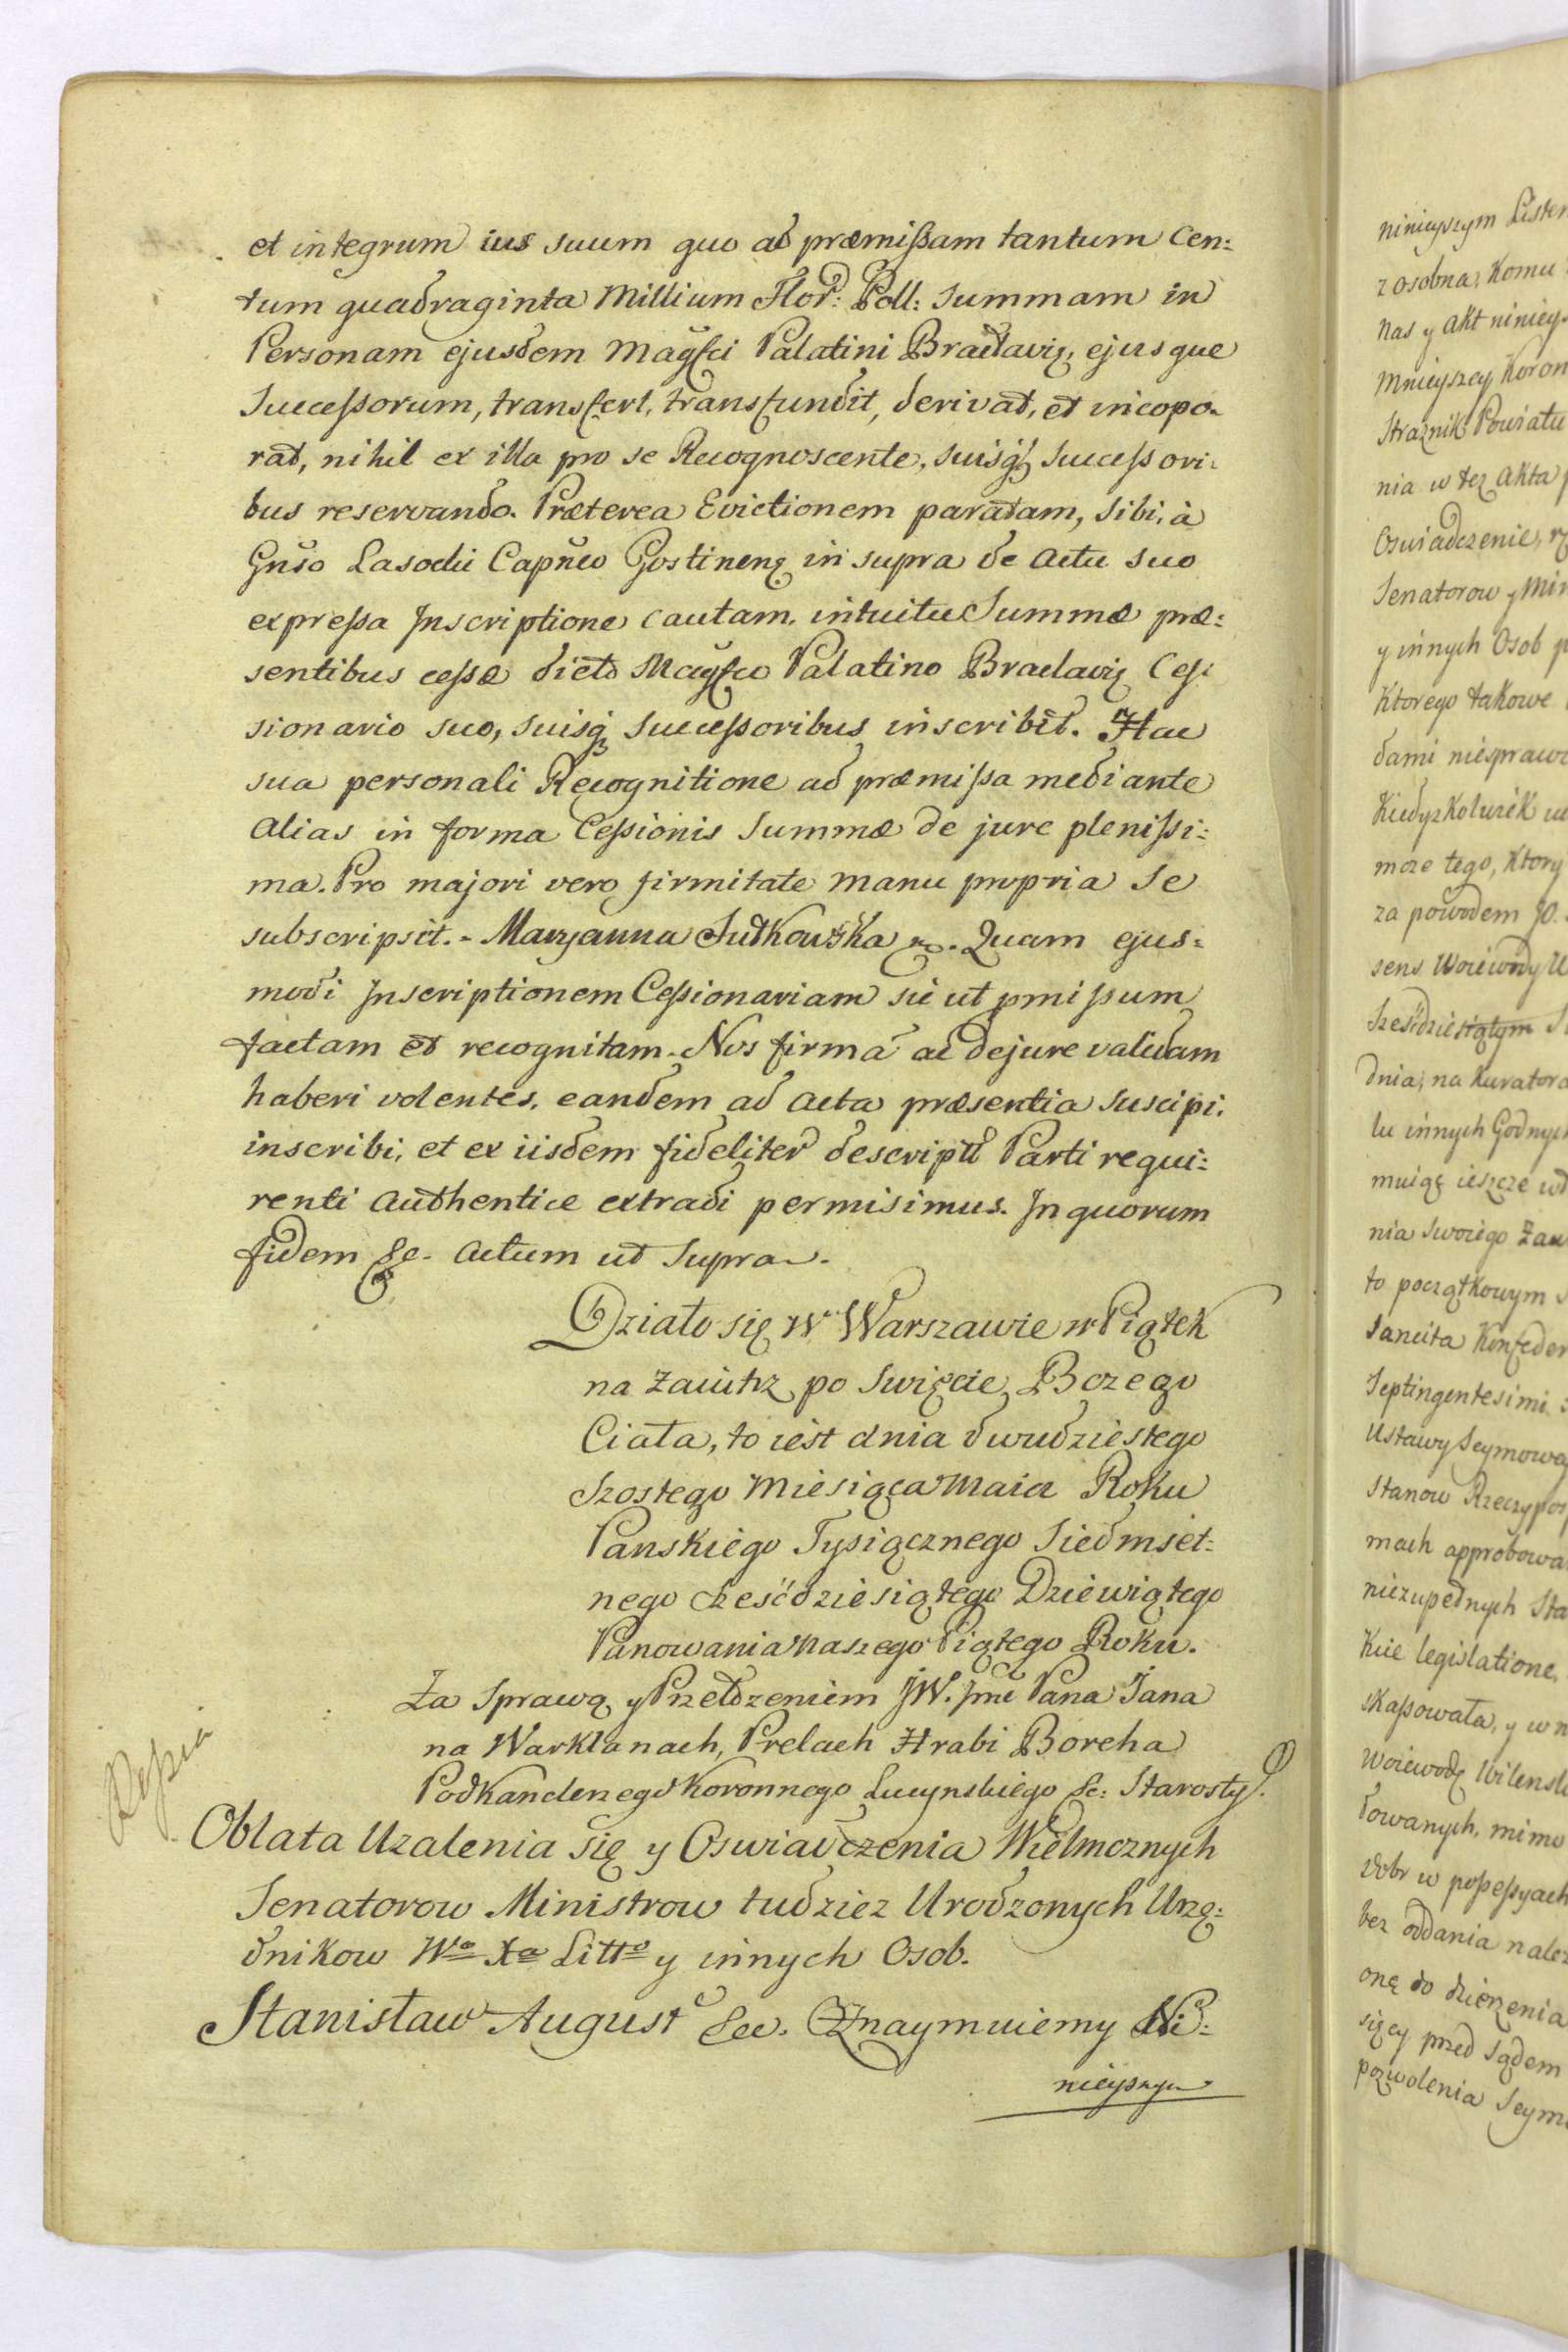 et integrum ius suum quo ad præmißam tantum Cen:
tum quadraginta Millium Flor: Poll: Summam in
Personam ejusdem Magfci Palatini Braclavię, ejusque
Successorum, transfert, transfundit, derivat, et incopo-
rat, nihil ex illa pro se Recognoscente, suisq̃ successori:
bus reservando. Præterea Evictionem paratam, sibi, à
Gnso Lasocki Capñeo Gostineñ in supra de Actu suo
expreßa Inscriptione cautam, intuitu Summæ præ:
sentibus ceßæ dicto Magfco Palatino Braclavię Ceß:
sionario suo, suisq̃ Succeßoribus inscribit. Hac
sua personali Recognitione ad præmißa mediante
Alias in forma Ceßionis Summæ de jure plenißi:
ma. Pro majori vero firmitate manu propria se
subscripsit. - Maryanna Sułkowska mp. Quam ejus:
modi Inscriptionem Ceßionariam sic ut pmißum
factam et recognitam. Nos firmã ac de jure validam
haberi volentes, eandem ad Acta præsentia suscipi,
inscribi, et ex iisdem fideliter descriptũ Parti requi:
renti Authentice extradi permisimus. In quorum
fidem &c. Actum ut Supra.
Działo się w Warszawie w Piątek
na zaiutrz po Swięcie Bozego
Ciała, to iest dnia dwudziestego
Szostego Miesiąca Maia Roku
Panskiego Tysiącznego Siedmset:
nego Sześćdziesiątego Dziewiątego
Panowania Naszego Piątego Roku.
Za Sprawą y Przełozeniem JW. Jmć Pana Jana
na Warklanach, Prelach Hrabi Borcha
Podkanclerzego Koronnego Lucynskiego &c: Starosty.
Rossia
Oblata Uzalenia się y Oswiadczenia Wielmoznych
Senatorow Ministrow tudziez Urodzonych Urzę:
dnikow Wo Xa Litto y innych Osob.
Stanisław August &c. Oznaymuiemy Ni:
nieyszym
ninieyszym Listem
z osobna, Komu
Nas y Akt niniey
Mnieyszey Koron
Straznik Powiatu
nia w tez Akta
Oswiadczenie,
Senatorow y Min
y innych Osob
Ktorego takowe
dami niesprawe
Kiedyzkolwiek
moze tego, Ktory
za powodem JO.
sens Woiewody
Sześćdziesiątym
dnia, na Kuratora
lu innych Godnych
muiąc ieszcze
nia swoiego
to początkowym
Sancita Konfeder
Septingentesimi
Ustawy Seymowe
Stanow Rzeczypos
mach approbowa
niezupełnych Sta
Kie legislatione,
skaßowała, y w
Woiewodę Wilensk
łowanych, mimo
Dobr w poßeßyach
bez oddania nalez
onę do dzierzenia
sięcy przed Sądem
pozwolenia Seym